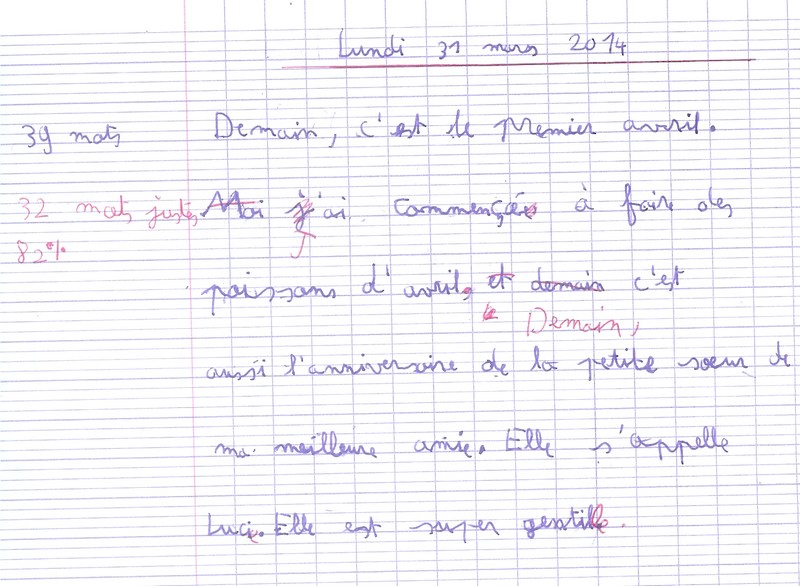 Lundi 31 mars 2014
39 mots Demain, c'est le premier avril.
32 mots justes Moi j'ai commencé à faire des
82%
poissons d'avril. et demain c'est
Demain,
aussi l'anniversaire de la petite soeur de
ma meilleure amie. Elle s'appelle
Lucie. Elle est super gentille.